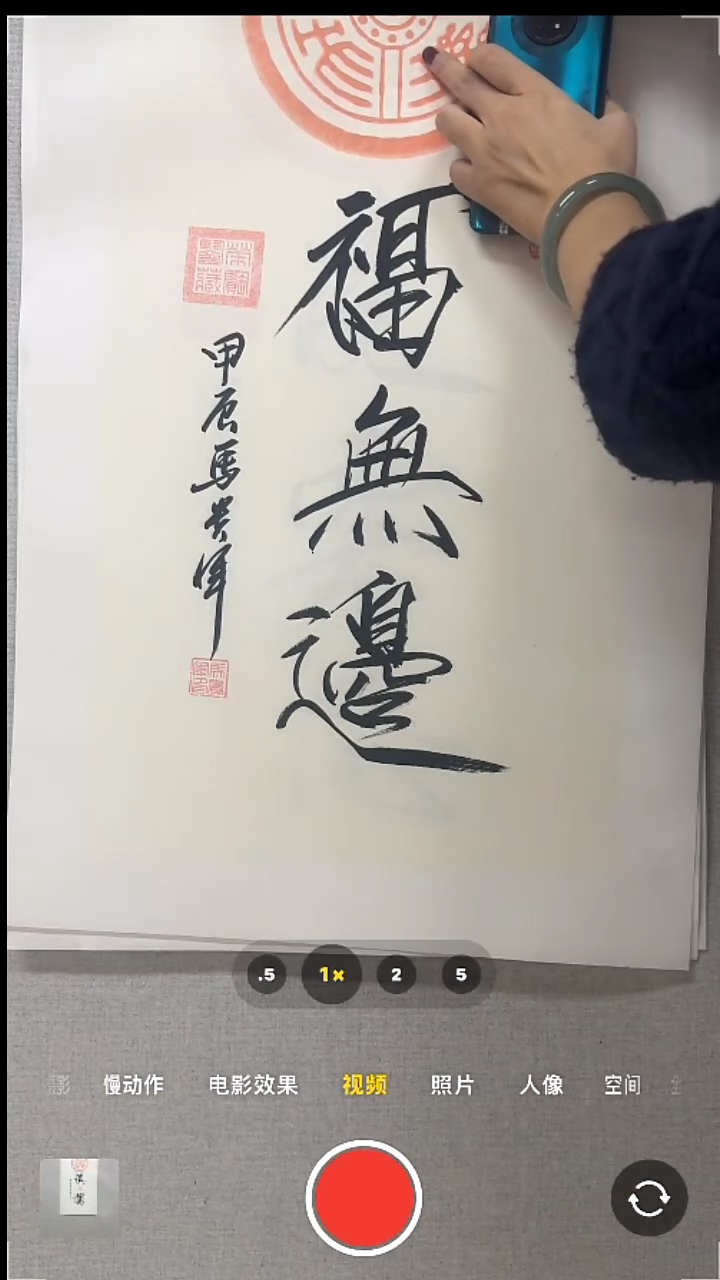 福無邊
甲辰馬貴軍
.5
1×
2
5
慢动作
电影效果
视频
照片
人像
空间